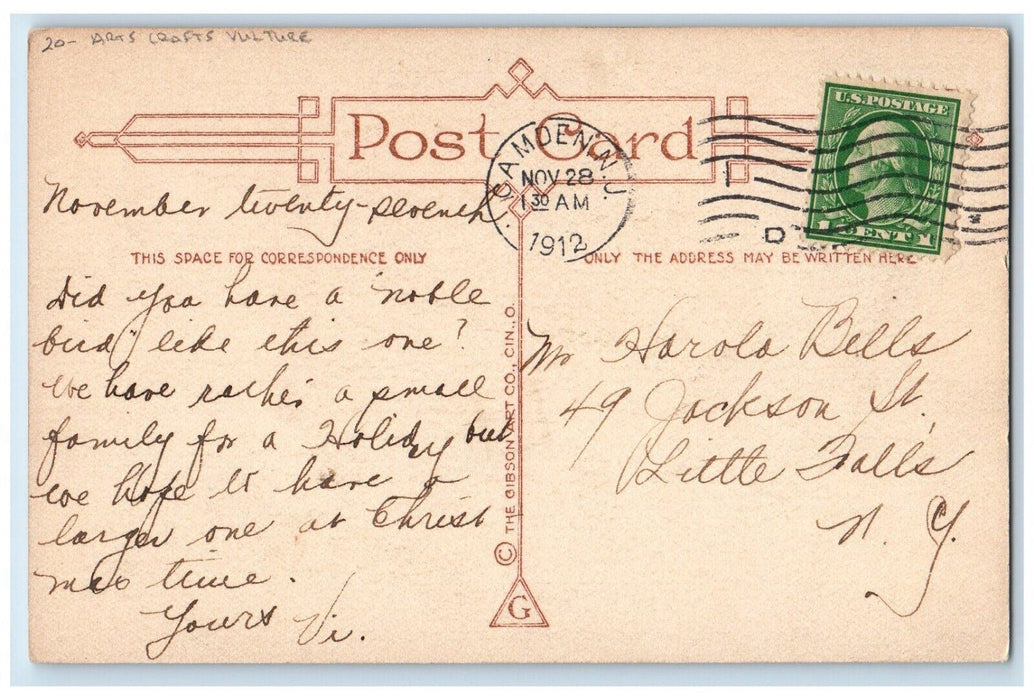 20- ARTS CRAFTS VULTURE
Post Card
U.S. POSTAGE
CAMDEN, N.J.
NOV 28
1 30 AM
1912
D
November twenty-seventh
THIS SPACE FOR CORRESPONDENCE ONLY
Did you have a "noble
bird" like this one?
We have rather a small
family for a Holiday but
we hope to have a
larger one at Christ
mas time.
Yours Vi.
© THE GIBSON ART CO., CIN., O.
G
ONLY THE ADDRESS MAY BE WRITTEN HERE
Mr Harold Bells
49 Jackson St.
Little Falls
N. Y.